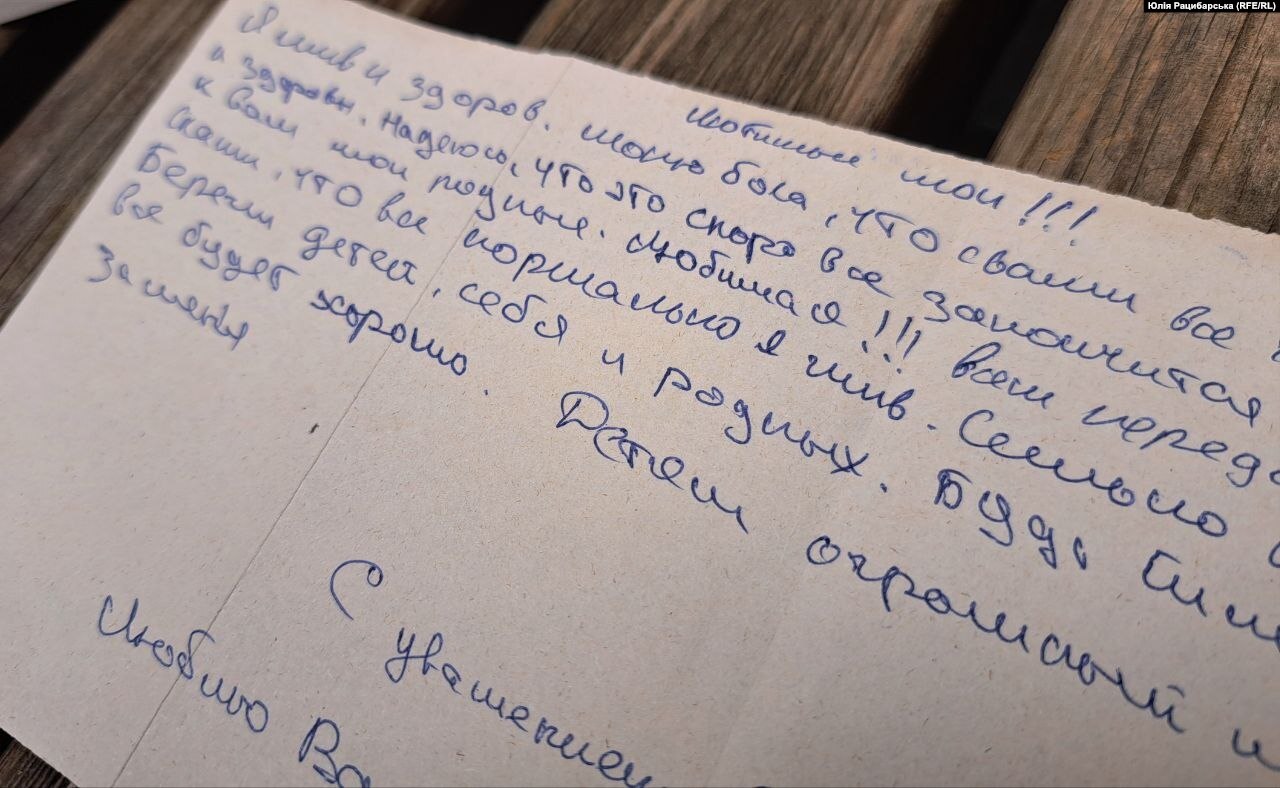 Юлія Рацибарська (RFE/RL)
Любимые мои !!!
Я жив и здоров. Молю бога, что с вами все
и здоровы. Надеюсь, что это скоро все закончится
к вам мои родные. Любимая!!! Всем
скажи, что все нормально я жив. Сильно
Береги детей, себя и родных. Будь
все будет хорошо. Детям огромный
за меня
С уважением
Люблю